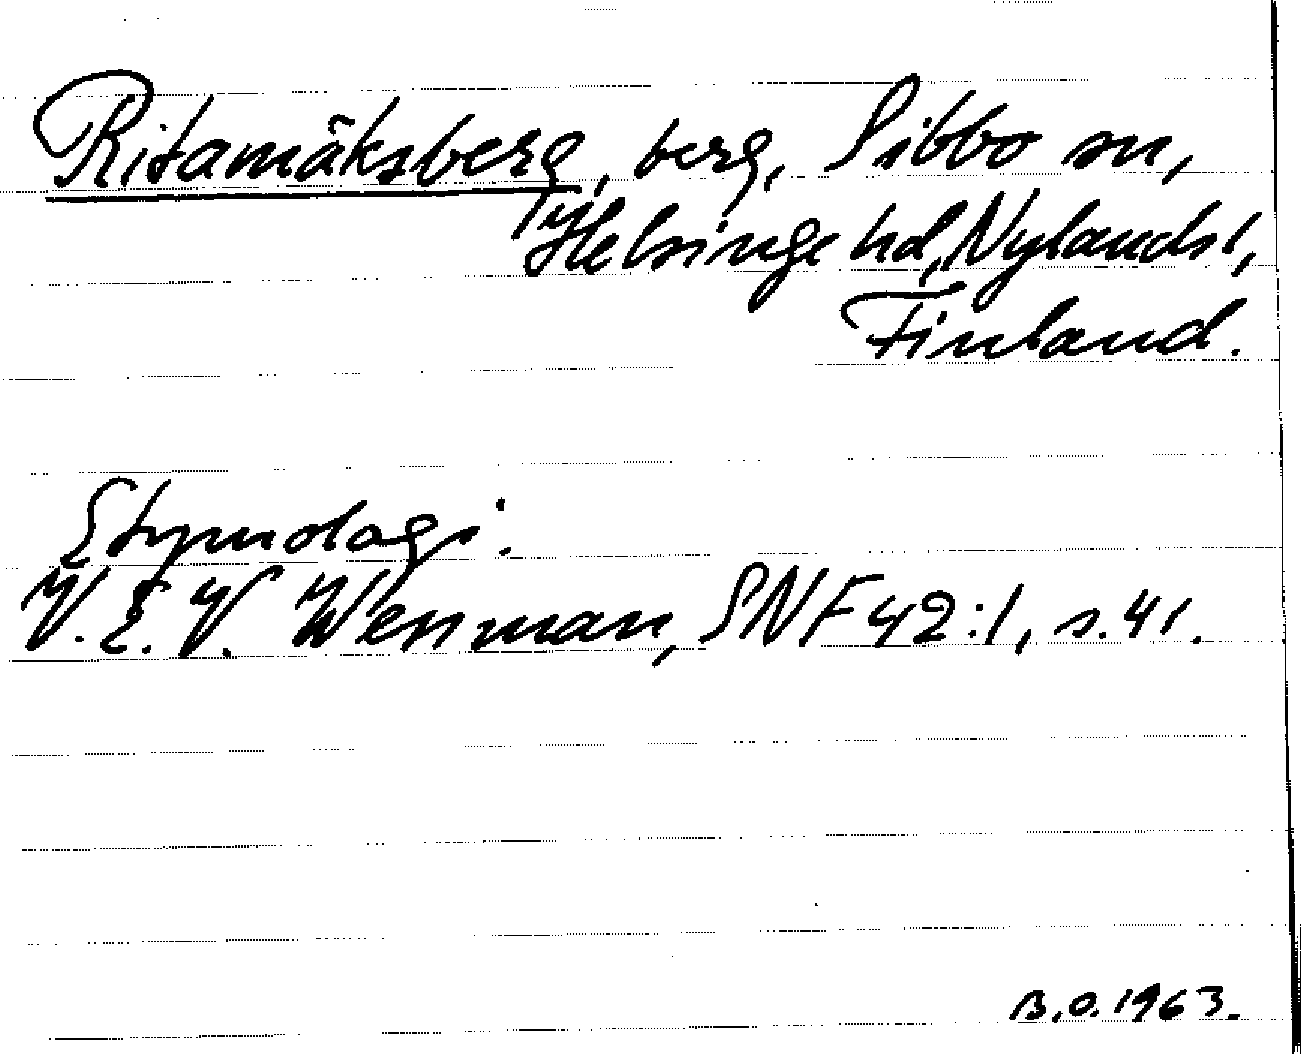 Ritamäksberg, berg, Sibbo sn,
Helsinge hd, Nylands l,
Finland.
Etymologi:
V. E. V. Wessman, SNF 42:1, s. 41.
B.O. 1963.